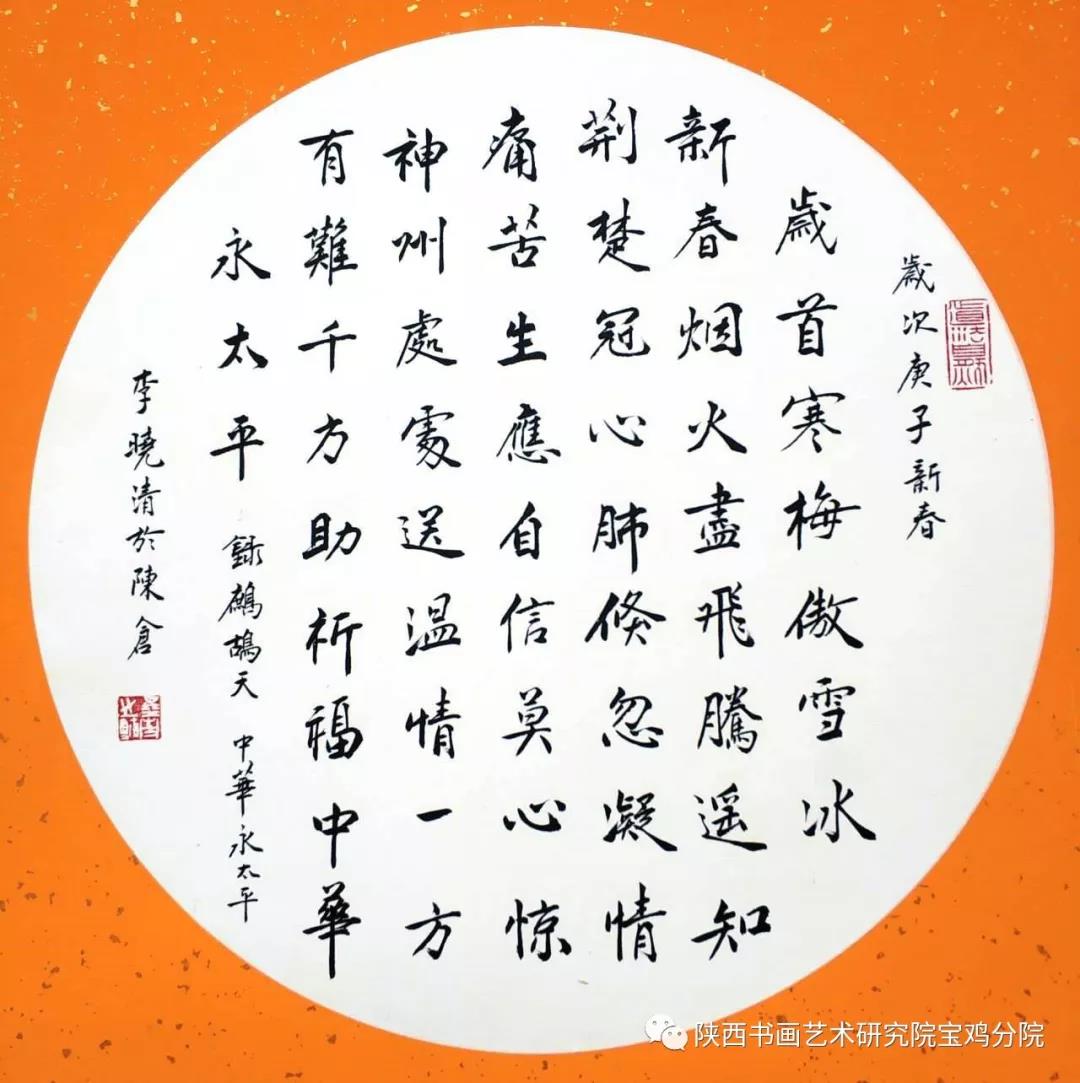 歲次庚子新春
歲首寒梅傲雪冰
新春烟火盡飛騰遥知
荆楚冠心肺倏忽凝情
痛苦生應自信莫心惊
神州處處送温情一方
有難千方助祈福中華
永太平 錄鷓鴣天 中華永太平
李曉清於陳倉
陕西书画艺术研究院宝鸡分院